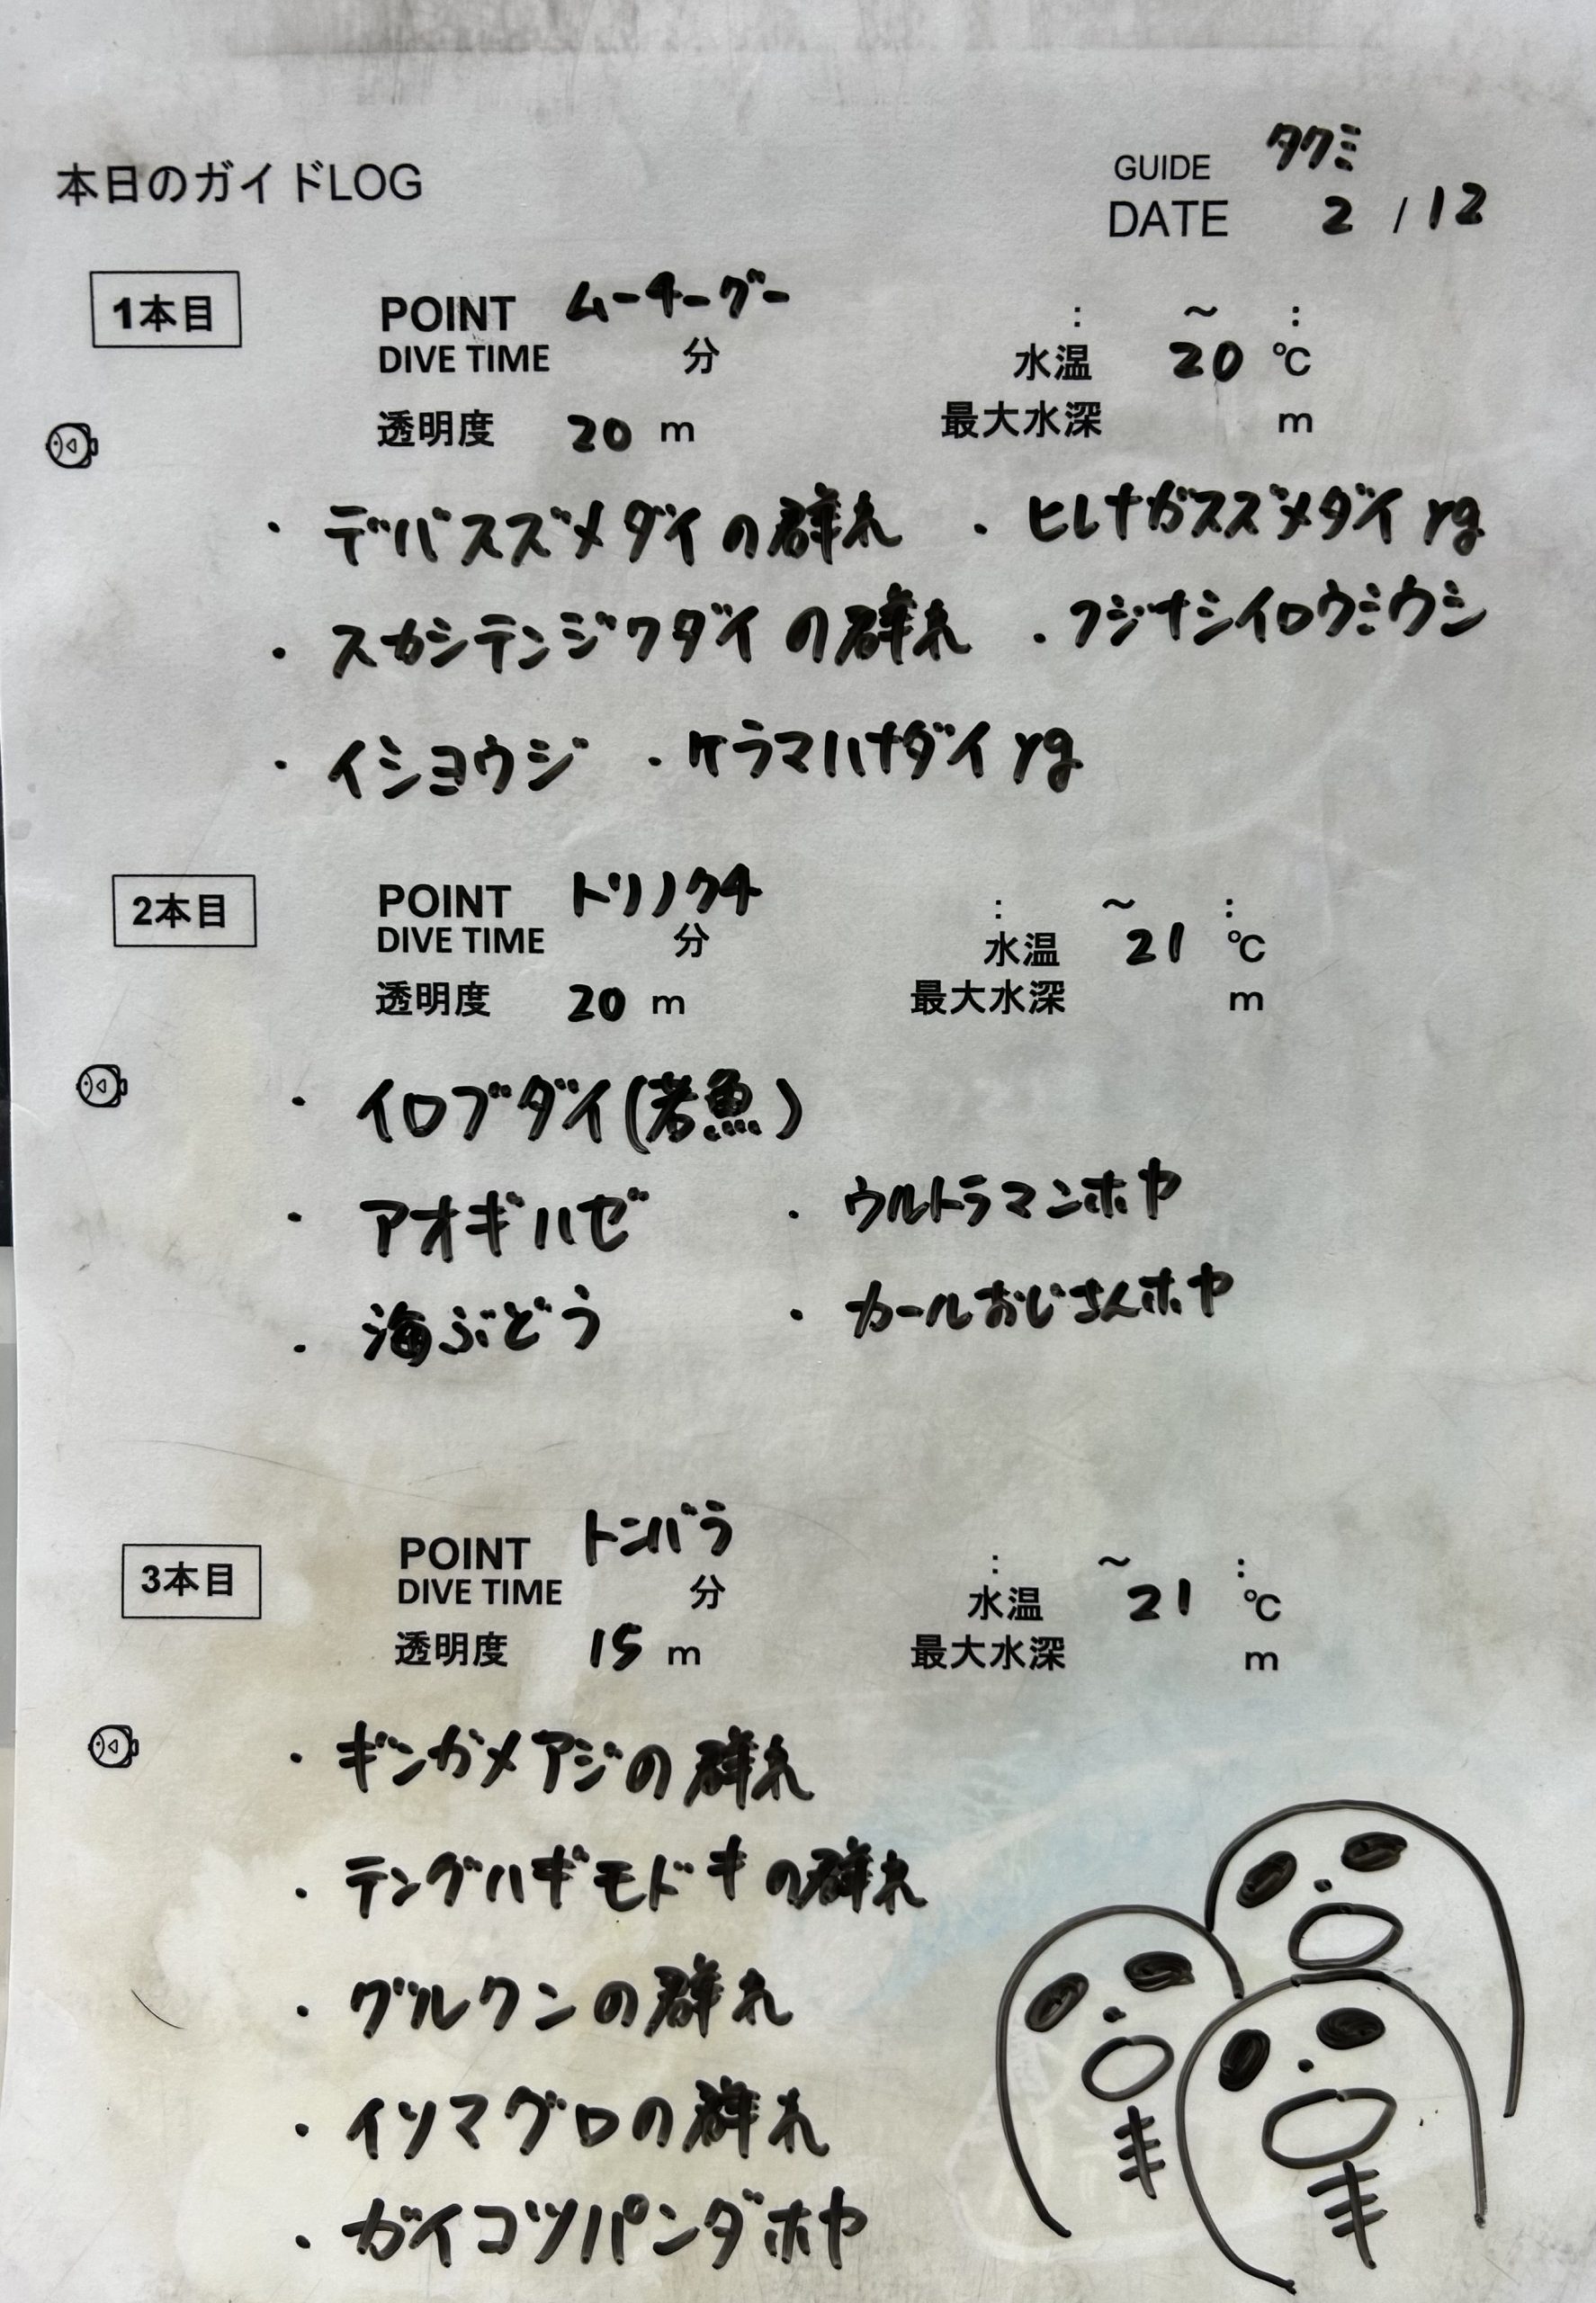 本日のガイドLOG
GUIDE タクミ
DATE 2 / 12
1本目
POINT ムーチーグー : ～ :
DIVE TIME 分 水温 20 ℃
透明度 20 m 最大水深 m
・デバスズメダイの群れ ・ヒレナガスズメダイ yg
・スカシテンジクダイの群れ ・フジナミイロウミウシ
・イシヨウジ ・ケラマハナダイ yg
2本目
POINT トリノクチ : ～ :
DIVE TIME 分 水温 21 ℃
透明度 20 m 最大水深 m
・イロブダイ(若魚)
・アオギハゼ ・ウルトラマンホヤ
・海ぶどう ・カールおじさんホヤ
3本目
POINT トンバラ : ～ :
DIVE TIME 分 水温 21 ℃
透明度 15 m 最大水深 m
・ギンガメアジの群れ
・テングハギモドキの群れ
・グルクンの群れ
・イソマグロの群れ
・ガイコツパンダホヤ